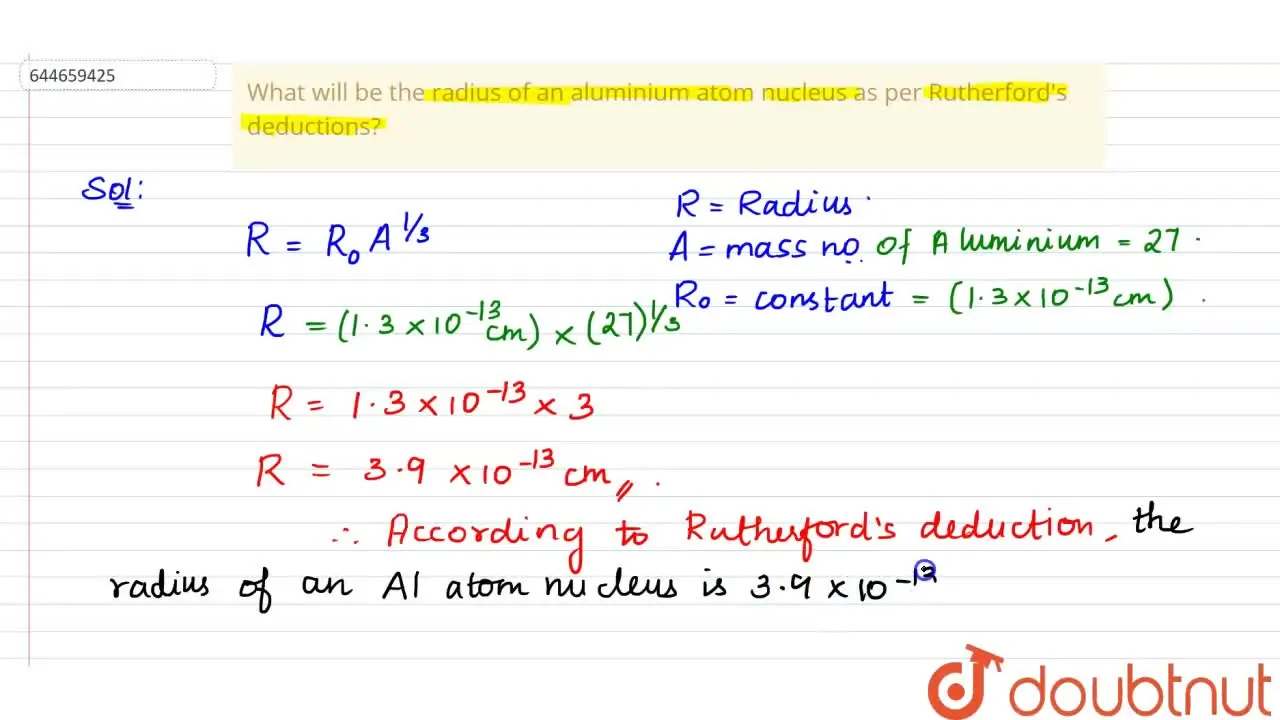 644659425
What will be the radius of an aluminium atom nucleus as per Rutherford's
deductions?
Sol:
R = Radius.
R = R₀ A^1/3
A = mass no. of Aluminium = 27.
R₀ = constant = (1.3 × 10⁻¹³ cm).
R = (1.3 × 10⁻¹³ cm) × (27)^1/3
R = 1.3 × 10⁻¹³ × 3
R = 3.9 × 10⁻¹³ cm //.
∴ According to Rutherford's deduction, the
radius of an Al atom nucleus is 3.9 × 10⁻¹³
doubtnut